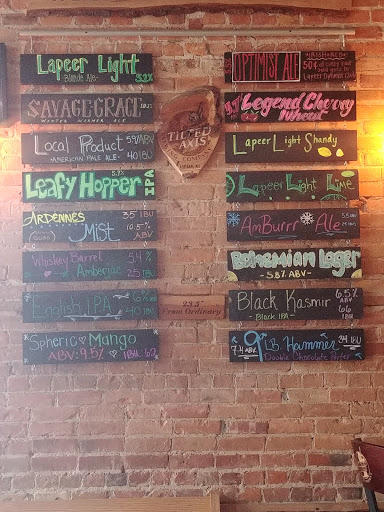 Lapeer Light
Blonde Ale-
5.2%
SAVAGE GRACE
WINTER WARMER ALE
Local Product
5% ABV
-AMERICAN PALE ALE-
40 IBU
Leafy Hopper
IPA
ARDENNES
35 IBU
Mist
10.5%
ABV
Whiskey Barrel
5.4%
Amberjac
25 IBU
English IPA
40 IBU
Spheric Mango
ABV: 9.5%
IBU: 69
TILTED
AXIS
23.5°
From Ordinary
OPTIMIST ALE
50¢
Lapeer Optimist Club
Legend Cherry
Wheat
Lapeer Light Shandy
Lapeer Light Lime
AmBurrr Ale
Bohemian Lager
-5.8% ABV-
Black Kasmir
6.5%
ABV
-Black IPA-
66
IBU
LB Hammer
34 IBU
7.4 ABV
Double Chocolate Porter